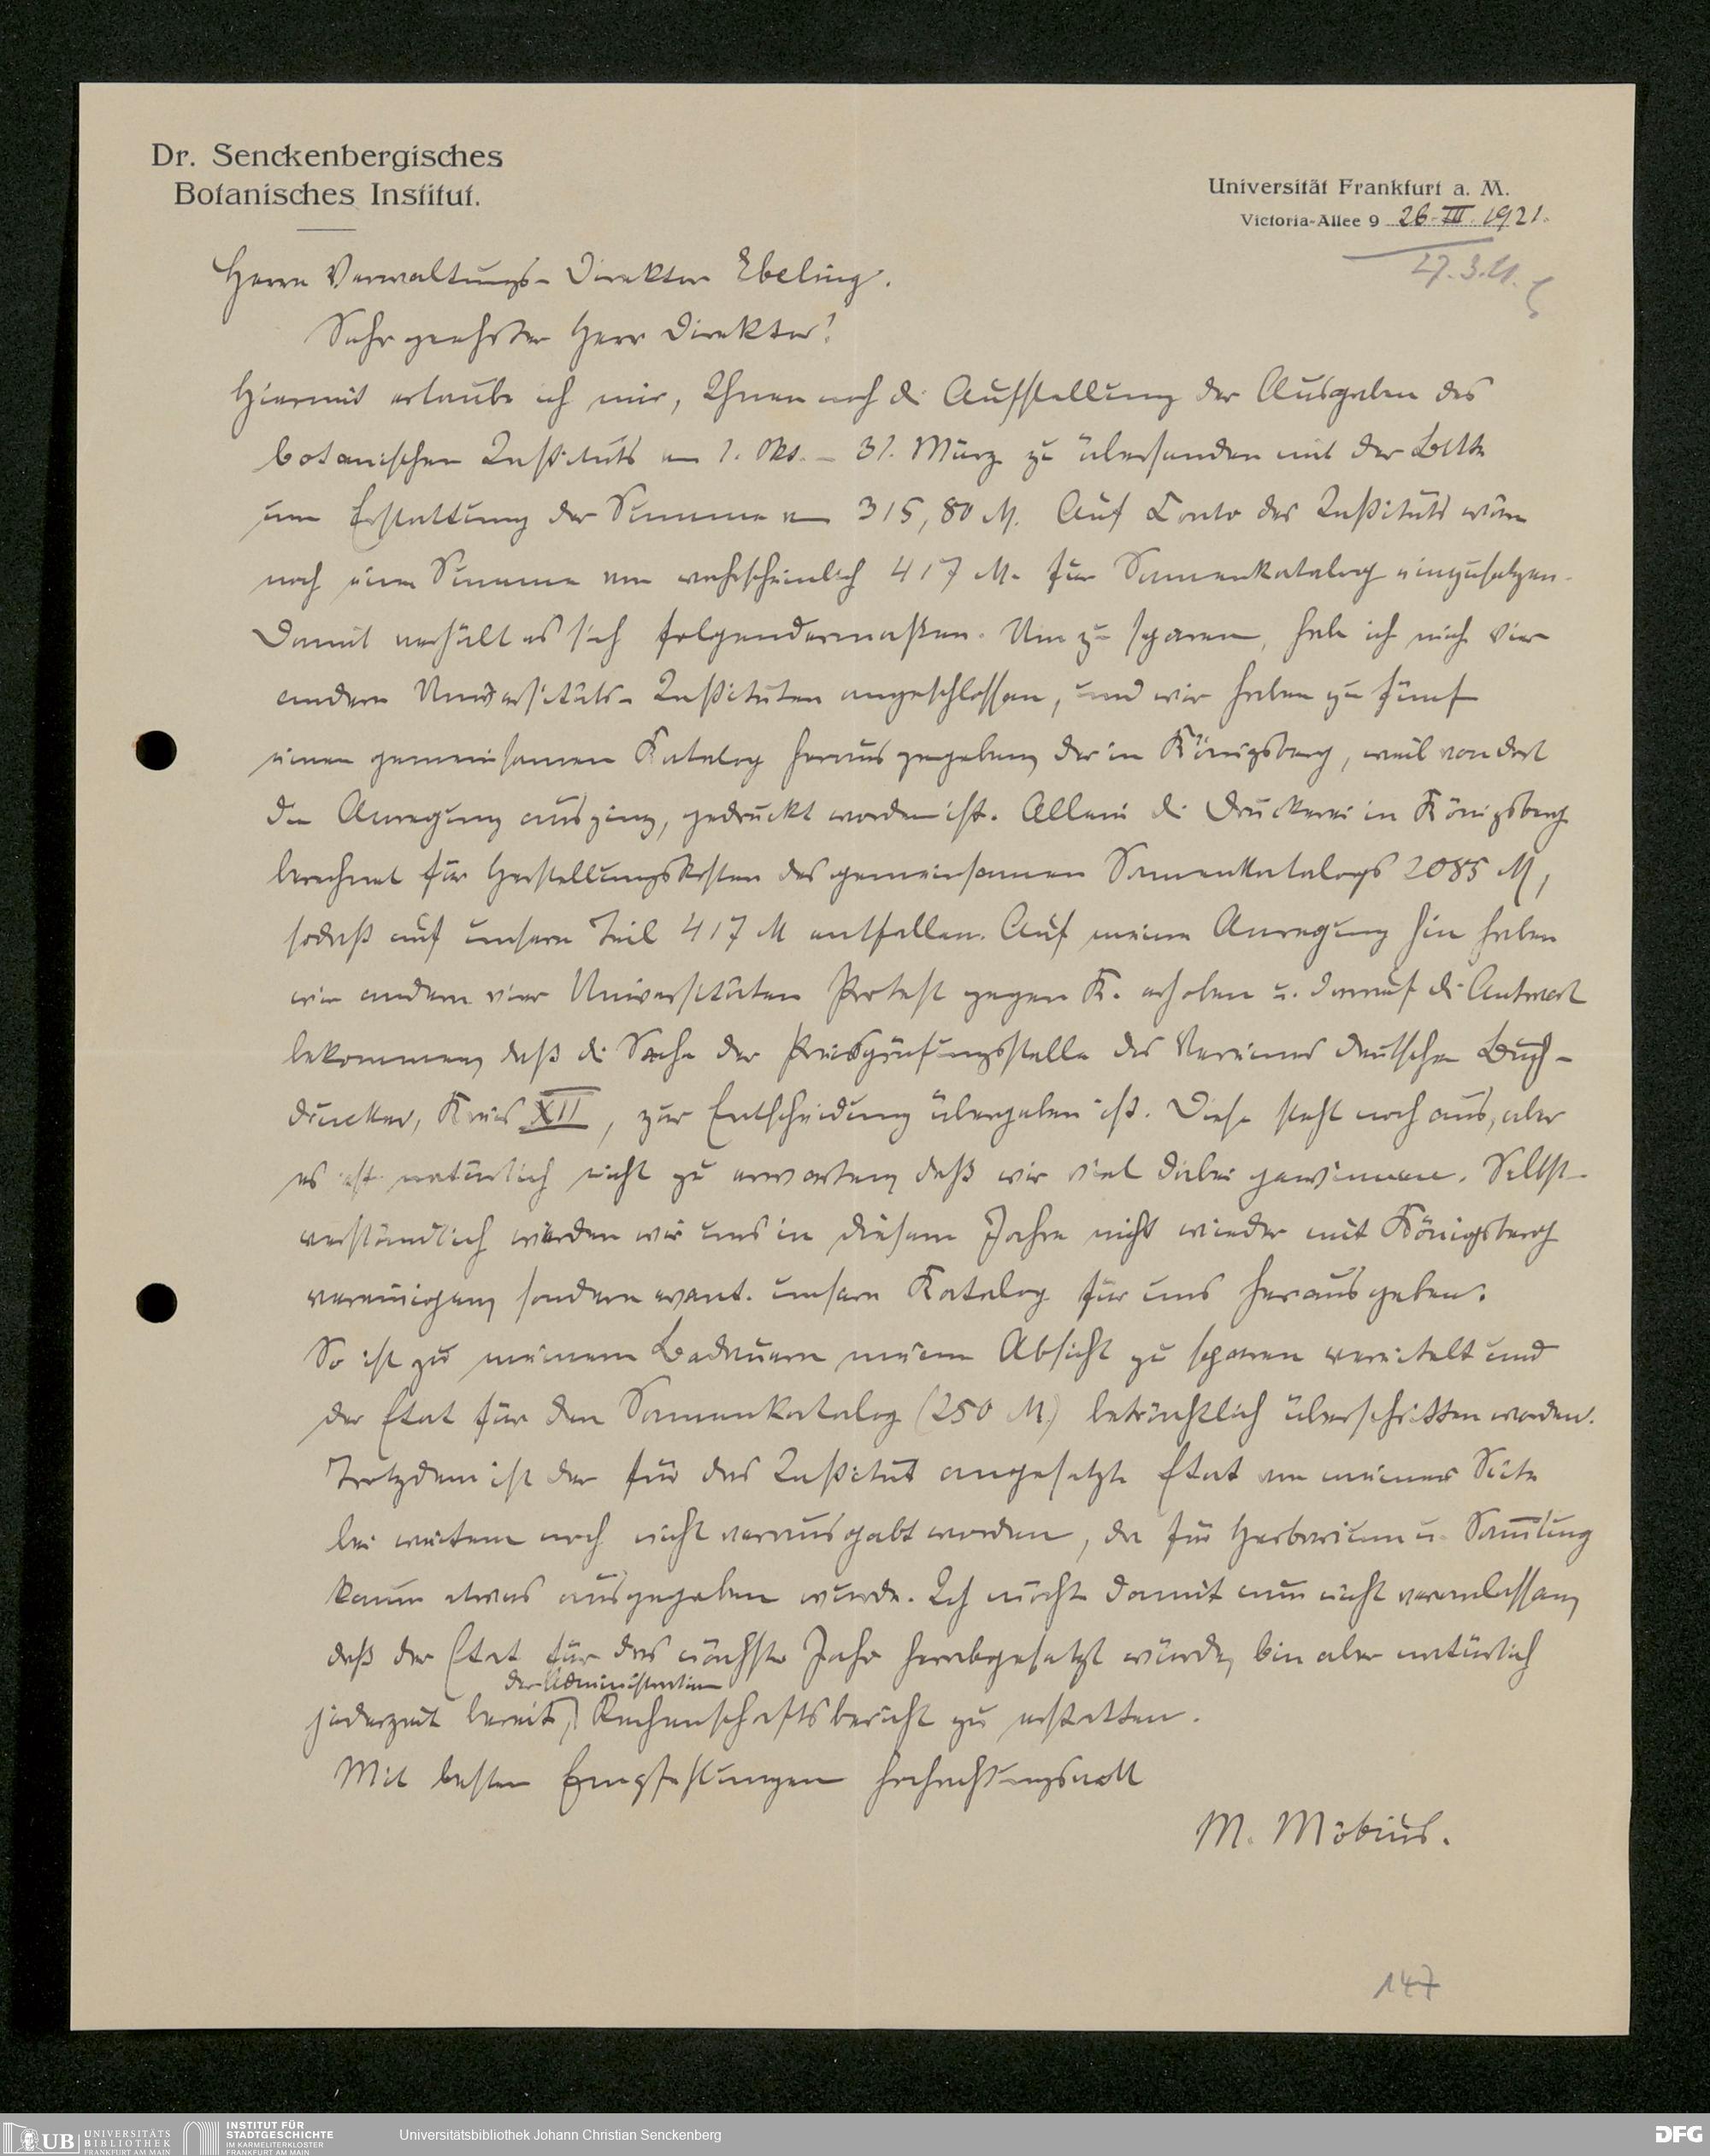 Dr. Senckenbergisches
Botanisches Institut.
Universität Frankfurt a. M.
Victoria-Allee 9 26. III. 1921.
27.3.21.
Herrn Verwaltungs-Direktor Ebeling.
Sehr geehrter Herr Direktor!
Hiermit erlaube ich mir, Ihnen noch die Aufstellung der Ausgaben des
botanischen Instituts vom 1. Okt. – 31. März zu übersenden mit der Bitte
um Erstattung der Summe von 315,80 M. Auf Conto des Instituts wäre
noch eine Summe von wahrscheinlich 417 M. für Samenkatalog einzusetzen.
Damit verhält es sich folgendermaßen. Um zu sparen, habe ich mich vier
andern Universitäts-Instituten angeschlossen, und wir haben zu fünf
einen gemeinsamen Katalog herausgegeben, der in Königsberg, weil von dort
die Anregung ausging, gedruckt worden ist. Allein die Druckerei in Königsberg
berechnet für Herstellungskosten des gemeinsamen Samenkatalogs 2085 M,
sodaß auf unsern Teil 417 M entfallen. Auf meine Anregung hin haben
wir andern vier Universitäten Protest gegen K. erhoben u. darauf die Antwort
bekommen, daß die Sache der Preisprüfungsstelle des Vereines deutscher Buch-
drucker, Kreis XII, zur Entscheidung übergeben ist. Diese steht noch aus, aber
es ist natürlich nicht zu erwarten, daß wir viel dabei gewinnen. Selbst-
verständlich werden wir uns in diesem Jahre nicht wieder mit Königsberg
vereinigen, sondern event. unsern Katalog für uns herausgeben.
So ist zu meinem Bedauern meine Absicht zu sparen vereitelt und
der Etat für den Samenkatalog (250 M.) beträchtlich überschritten worden.
Trotzdem ist der für das Institut angesetzte Etat von meiner Seite
bei weitem noch nicht verausgabt worden, da für Herbarium u. Sammlung
kaum etwas ausgegeben wurde. Ich möchte damit nun nicht veranlassen,
daß der Etat für das nächste Jahr herabgesetzt würde, bin aber natürlich
der Administration
jederzeit bereit, Rechenschaftsbericht zu erstatten.
Mit besten Empfehlungen hochachtungsvoll
M. Möbius.
147
UB UNIVERSITÄTS
BIBLIOTHEK
FRANKFURT AM MAIN
INSTITUT FÜR
STADTGESCHICHTE
IM KARMELITERKLOSTER
FRANKFURT AM MAIN
Universitätsbibliothek Johann Christian Senckenberg
DFG